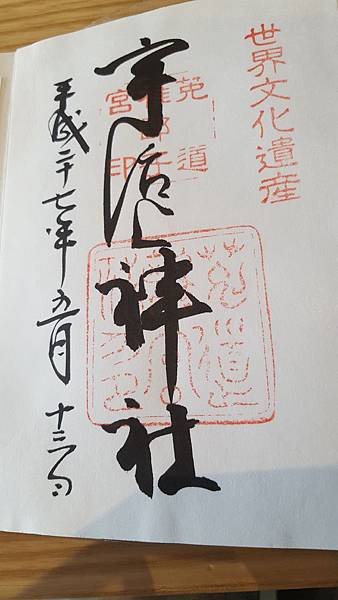 世界文化遺産
菟道
宮印
宇治上神社
平成二十七年五月十三日